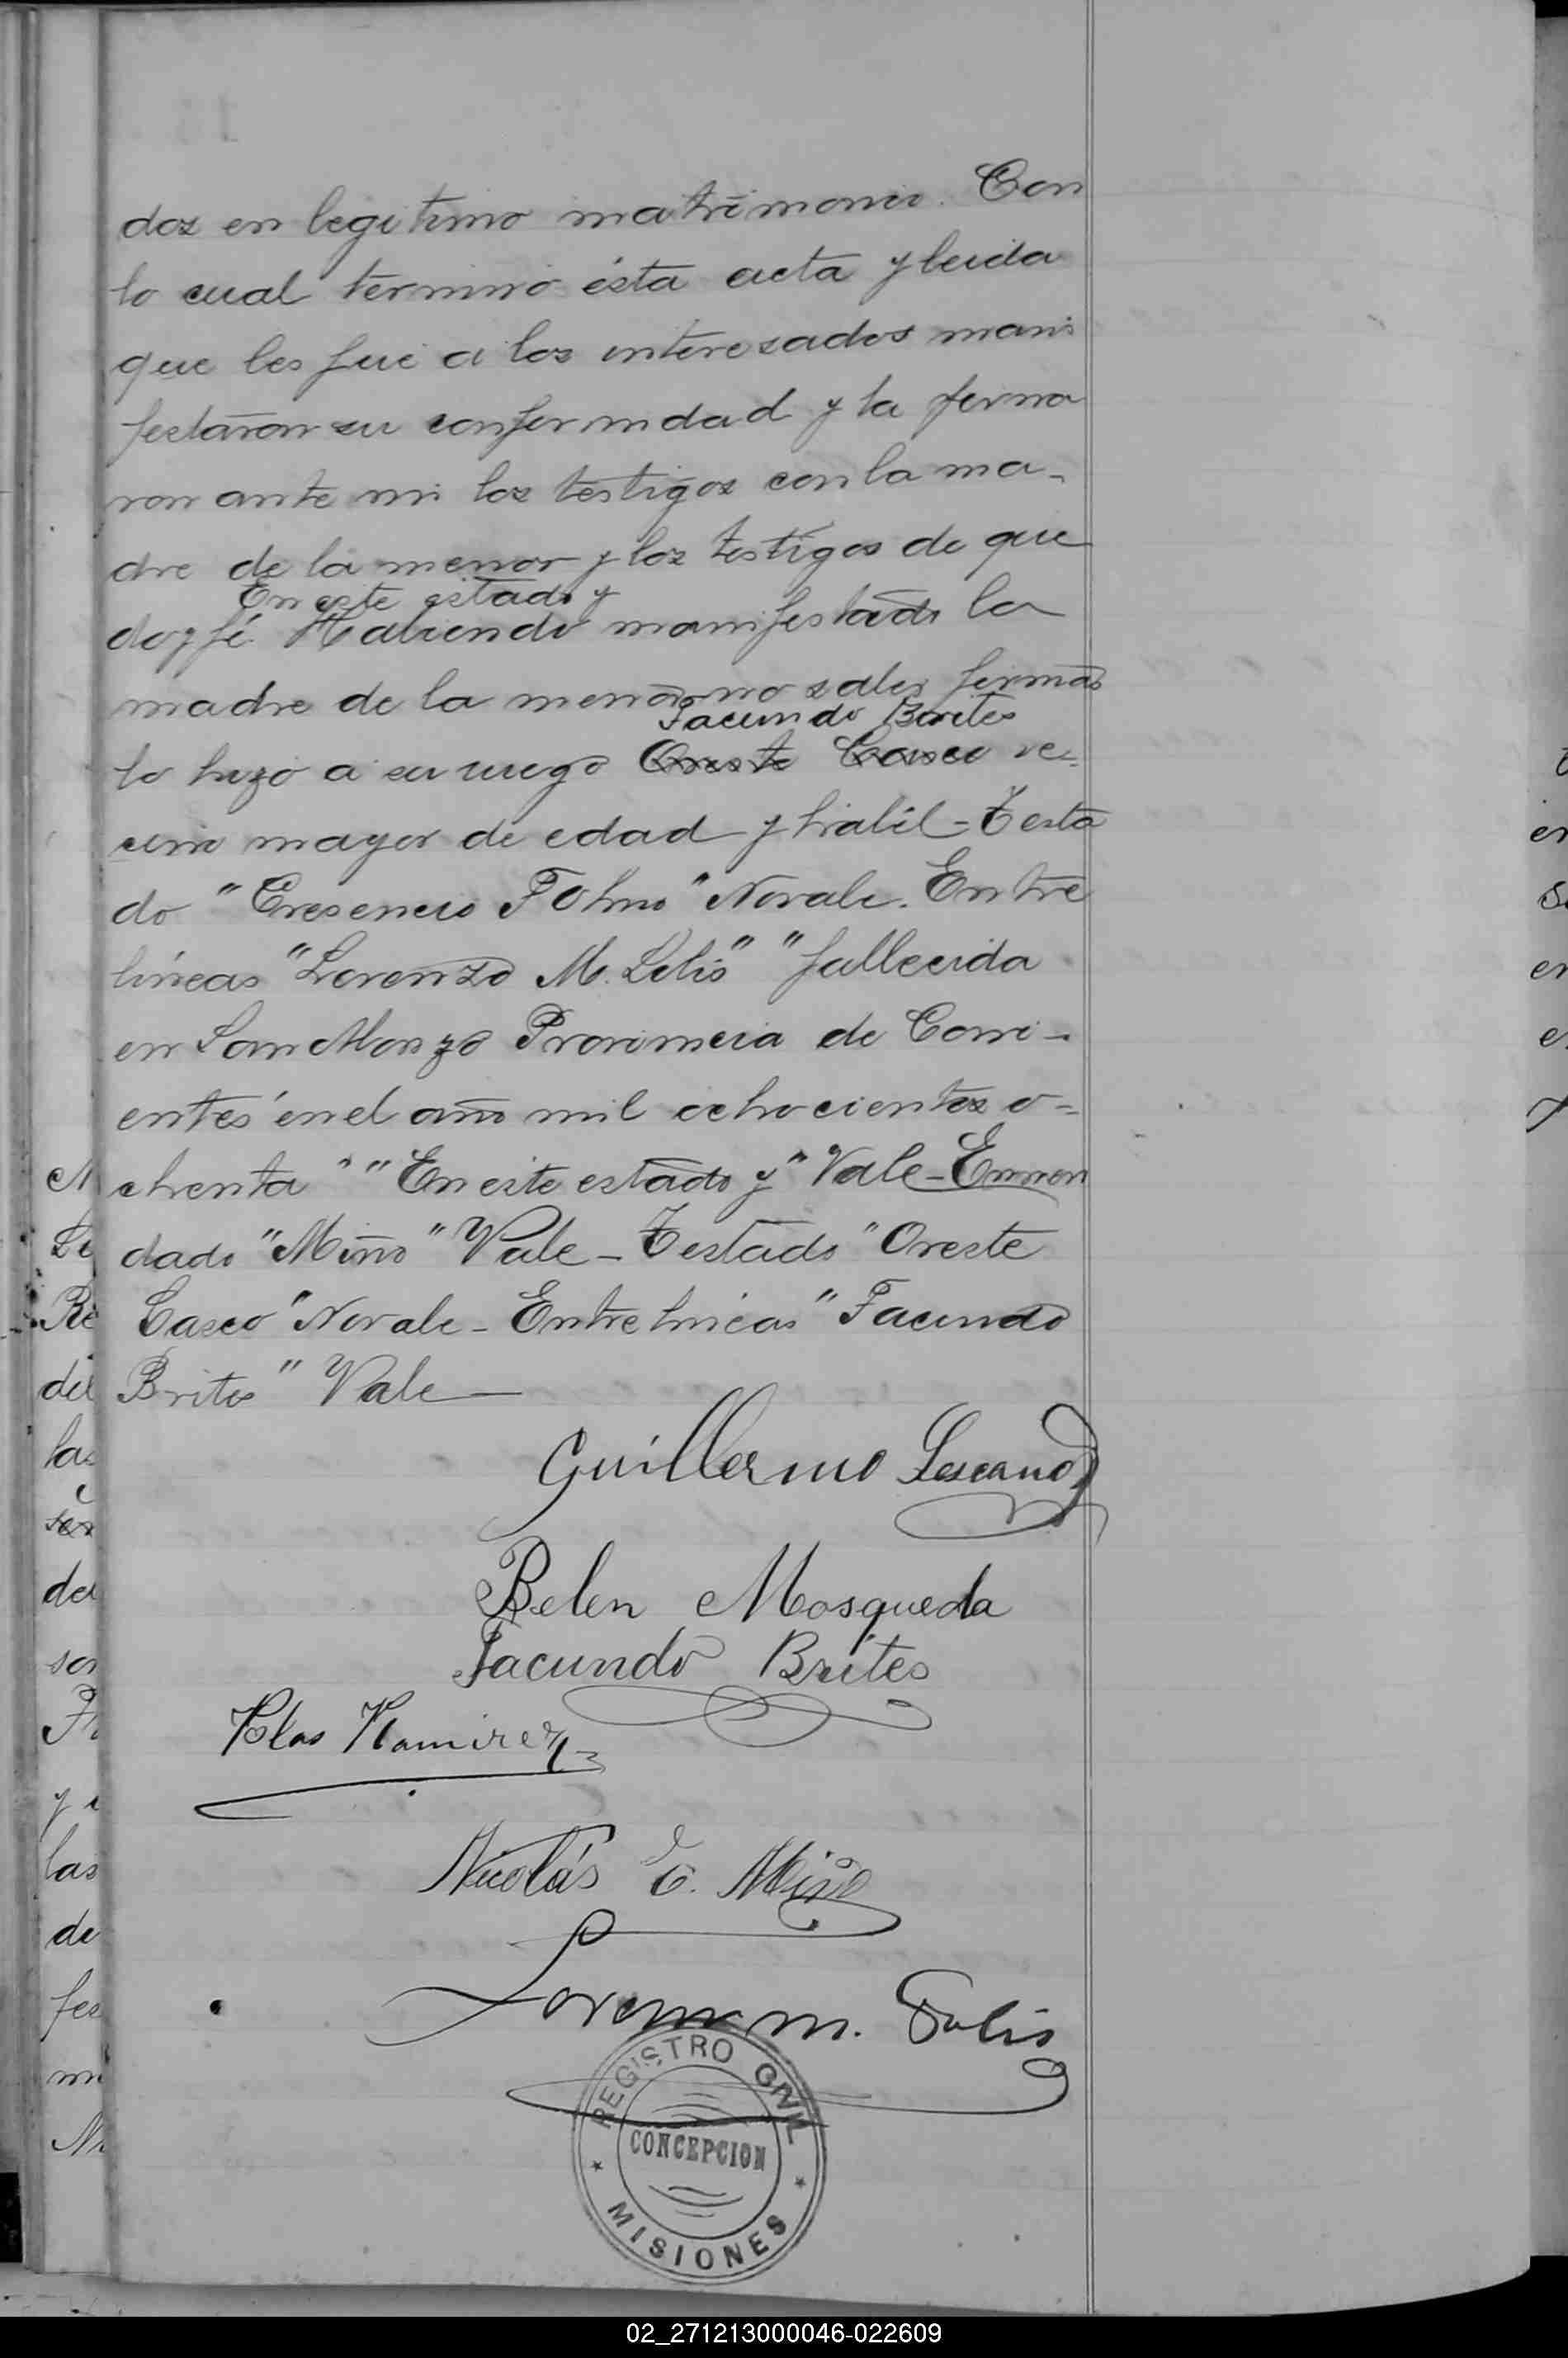 dos en legitimo matrimonio. Con
lo cual terminó ésta acta y leida
que les fué a los interesados mani
festaron su conformidad y la firma
ron ante mi los testigos con la ma-
dre de la menor y los testigos de que
En este estado y
doy fé. Habiendo manifestado la
madre de la menor no saber firmar
Facundo Brites
lo hizo a su ruego Oreste Casco ve-
cino mayor de edad y habil - Testa
do "Cresencio" Novale. Entre
líneas "Lorenzo M. Solis" "fallecida
en San Alonzo Provincia de Corri-
entes en el año mil ochocientos o-
chenta" "En este estado y" Vale - Enmen
dado "Miño" Vale - Testado "Oreste
Casco" Novale - Entre lineas "Facundo
Brites" Vale
Guillermo Lescano
Belen Mosqueda
Facundo Brites
Blas Ramirez
Nicolás E. Miño
Lorenzo M. Solis
REGISTRO CIVIL
CONCEPCION
MISIONES
02_271213000046-022609